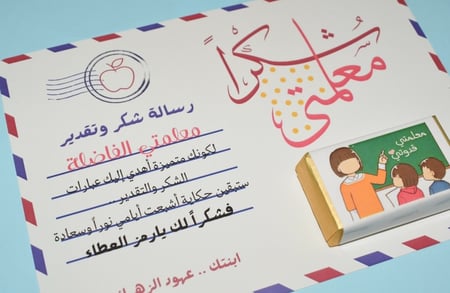 شكراً
معلمتي
رسالة شكر وتقدير
معلمتي الفاضلة
لكونك متميزة أهدي إليك عبارات
الشكر والتقدير..
ستبقين حكاية أشبعت أيامي نوراً وسعادة
فشكراً لك يارمز العطاء
ابنتك .. عهود الزهراني
معلمتي
قدوتي